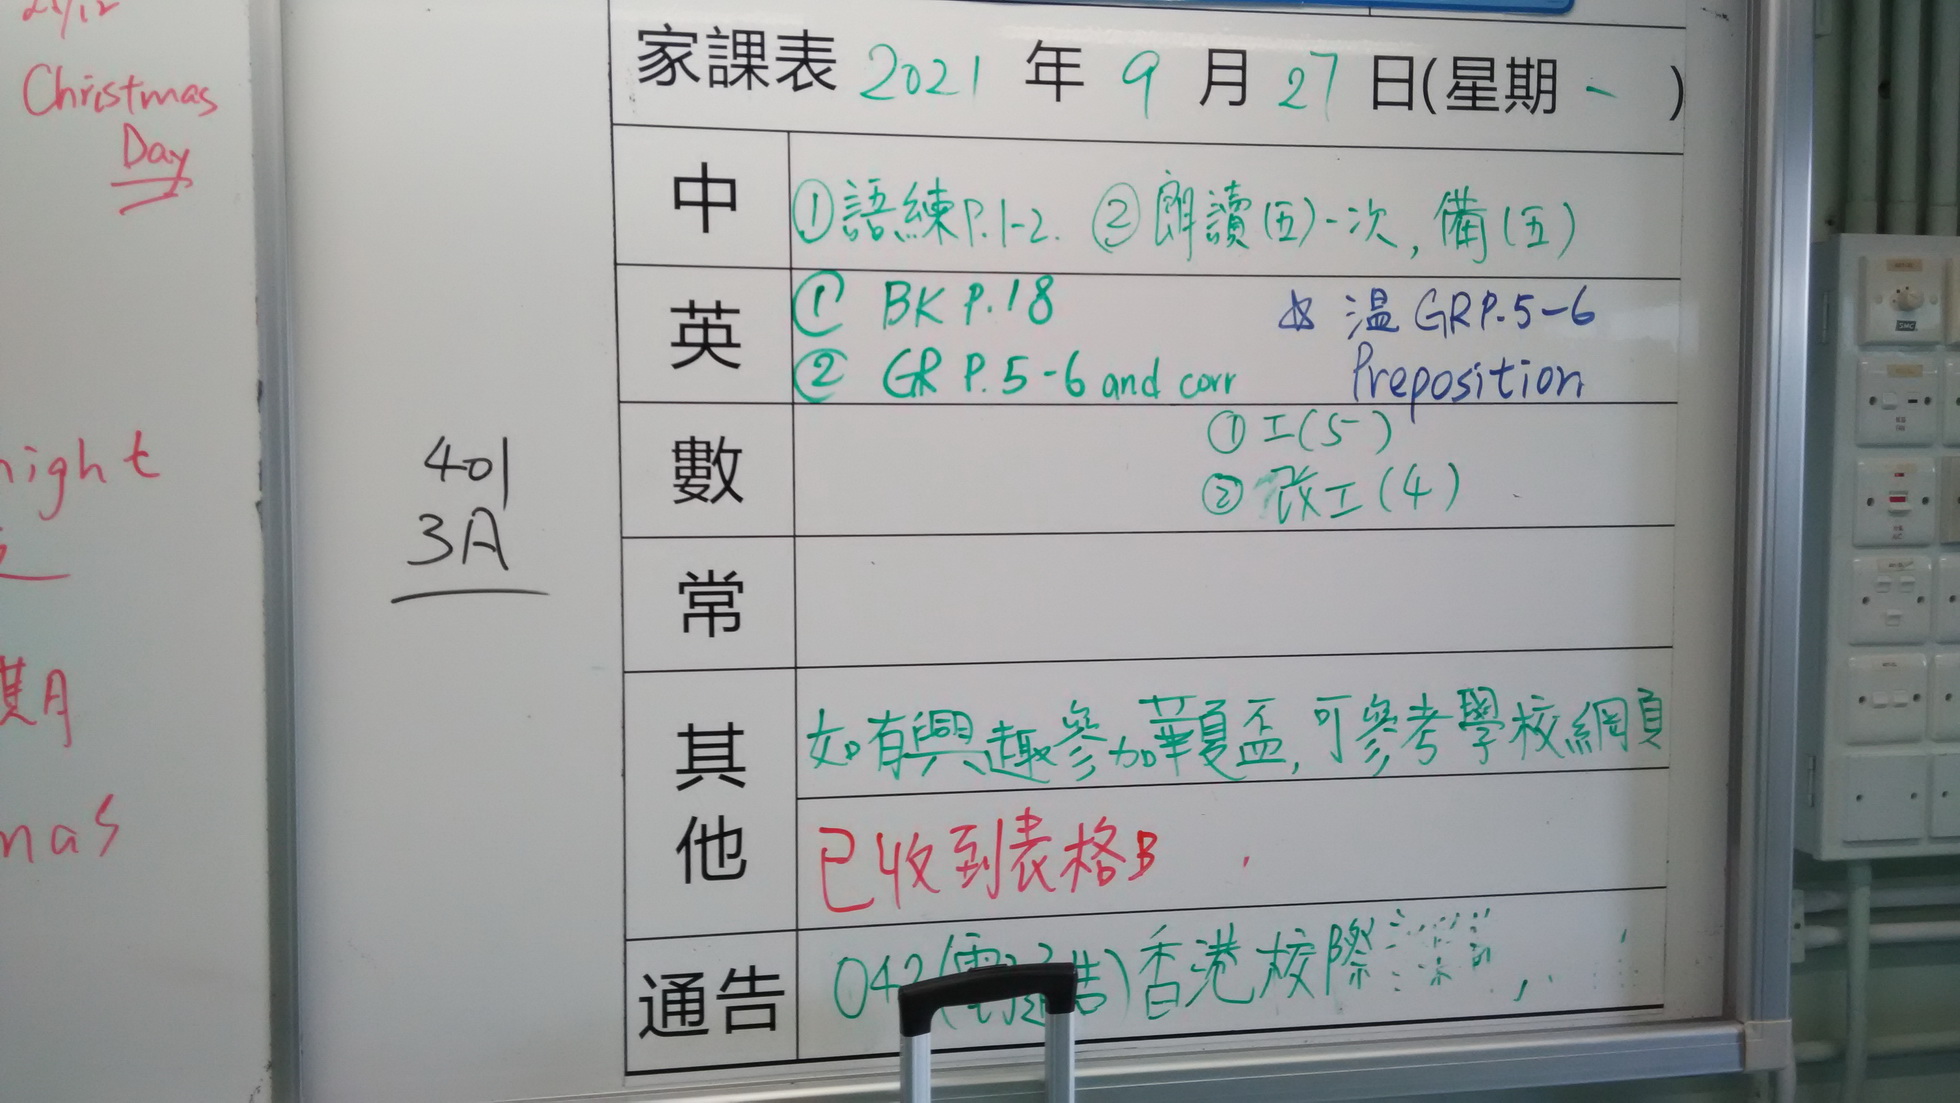 Christmas
Day
night
期
mas
401
3A
家課表 2021 年 9 月 27 日(星期一)
中 ①語練P.1-2. ②朗讀(五)一次, 備(五)
英 ① BK P.18 ☆ 溫 GR P.5-6
② GR P.5-6 and corr Preposition
數 ① 工(5)
② 改工(4)
常
其他 如有興趣參加華夏盃, 可參考學校網頁
已收到表格B
通告 042(電 告)香港校際